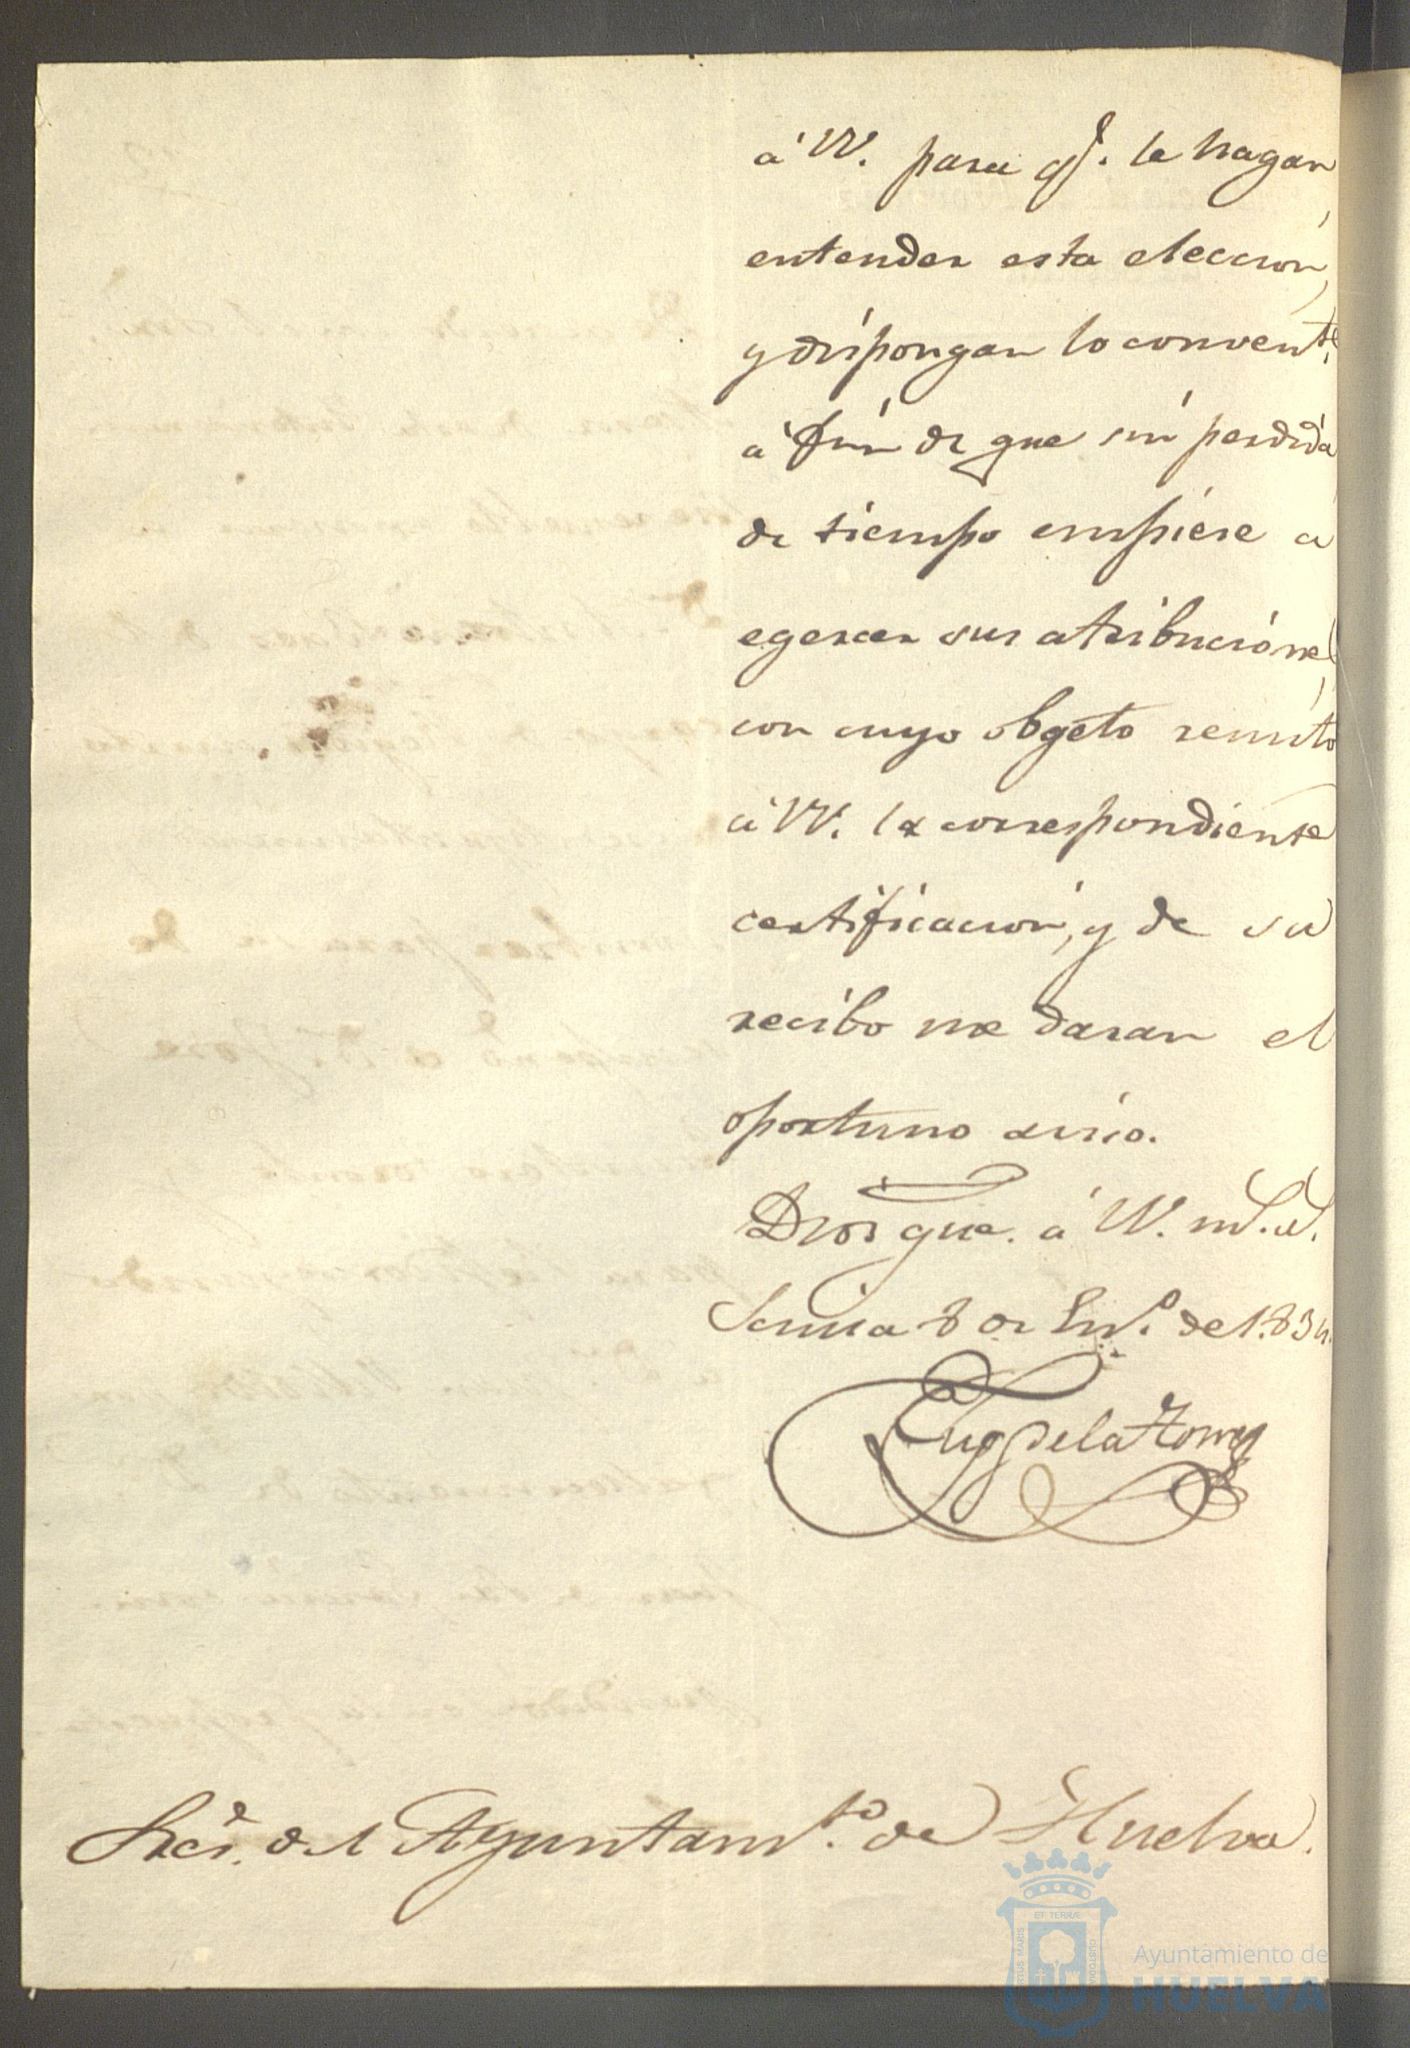 á VV. para qe. le hagan
entender esta eleccion,
y dispongan lo convente.
á fin de que sin perdida
de tiempo empiese a
egercer sus atribuciones,
con cuyo obgeto remito
á VV. la correspondiente
certificacion, y de su
recibo me daran el
oportuno aviso.
Dios gue. á VV. ms. as.
Sevilla 8 de Eno. de 1.834.
Eugo de la Torre
Sres. del Ayuntamto. de Huelva.
Ayuntamiento de
HUELVA